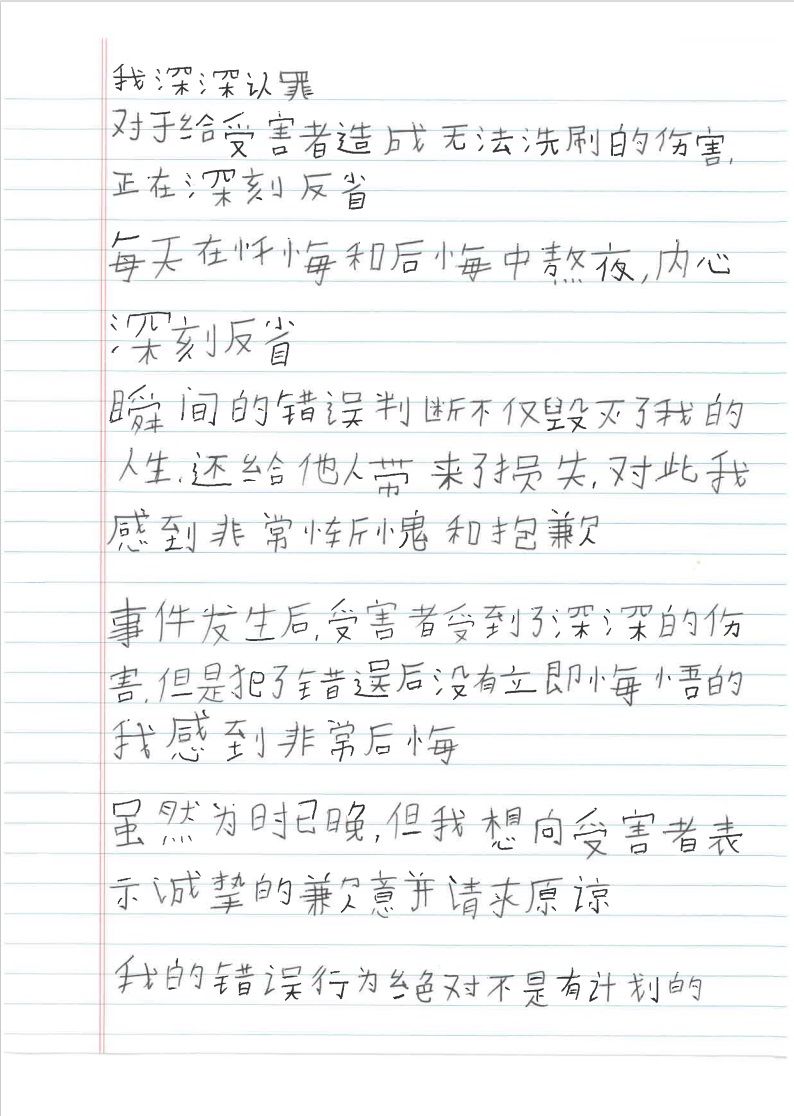 我深深认罪
对于给受害者造成无法洗刷的伤害,
正在深刻反省
每天在忏悔和后悔中熬夜,内心
深刻反省
瞬间的错误判断不仅毁灭了我的
人生.还给他人带来了损失,对此我
感到非常惭愧和抱歉
事件发生后,受害者受到了深深的伤
害,但是犯了错误后没有立即悔悟的
我感到非常后悔
虽然为时已晚,但我想向受害者表
示诚挚的歉意并请求原谅
我的错误行为绝对不是有计划的